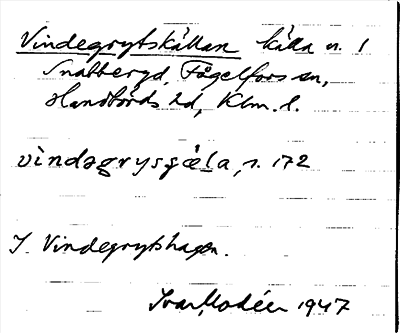 Vindegrytskällan källa n. 1
Snatteryd, Fågelfors sn,
Handbörds hd, Klm. l.
vìndəgrysçæ̀la, s. 172
I. Vindegrytshagen.
Ivar Modéer 1947